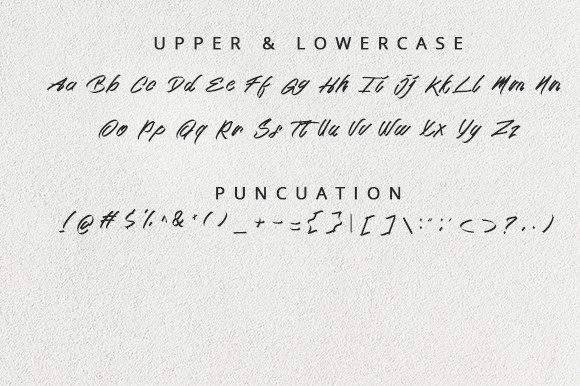 UPPER & LOWERCASE
Aa Bb Cc Dd Ee Ff Gg Hh Ii Jj Kk Ll Mm Nn
Oo Pp Qq Rr Ss Tt Uu Vv Ww Xx Yy Zz
PUNCUATION
! @ # $ % ^ & * ( ) _ + - = { } | [ ] \ : " ; ' < > ? , . /